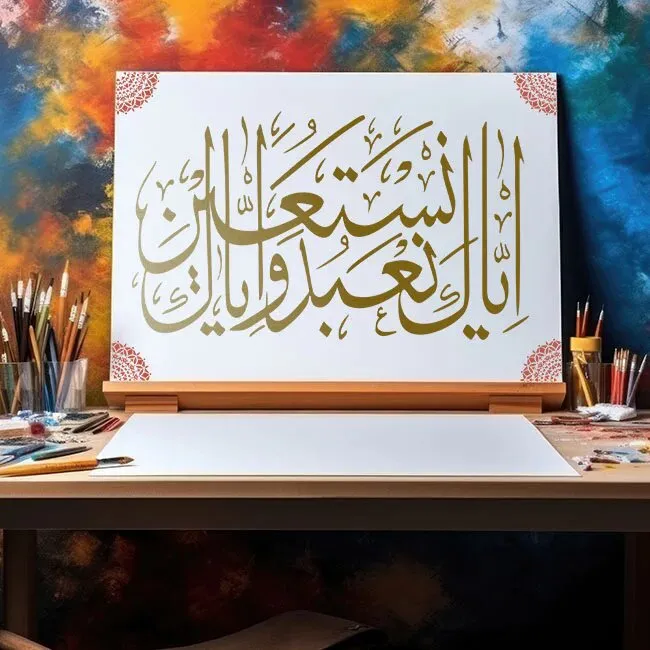 إِيَّاكَ نَعْبُدُ وَإِيَّاكَ نَسْتَعِينُ